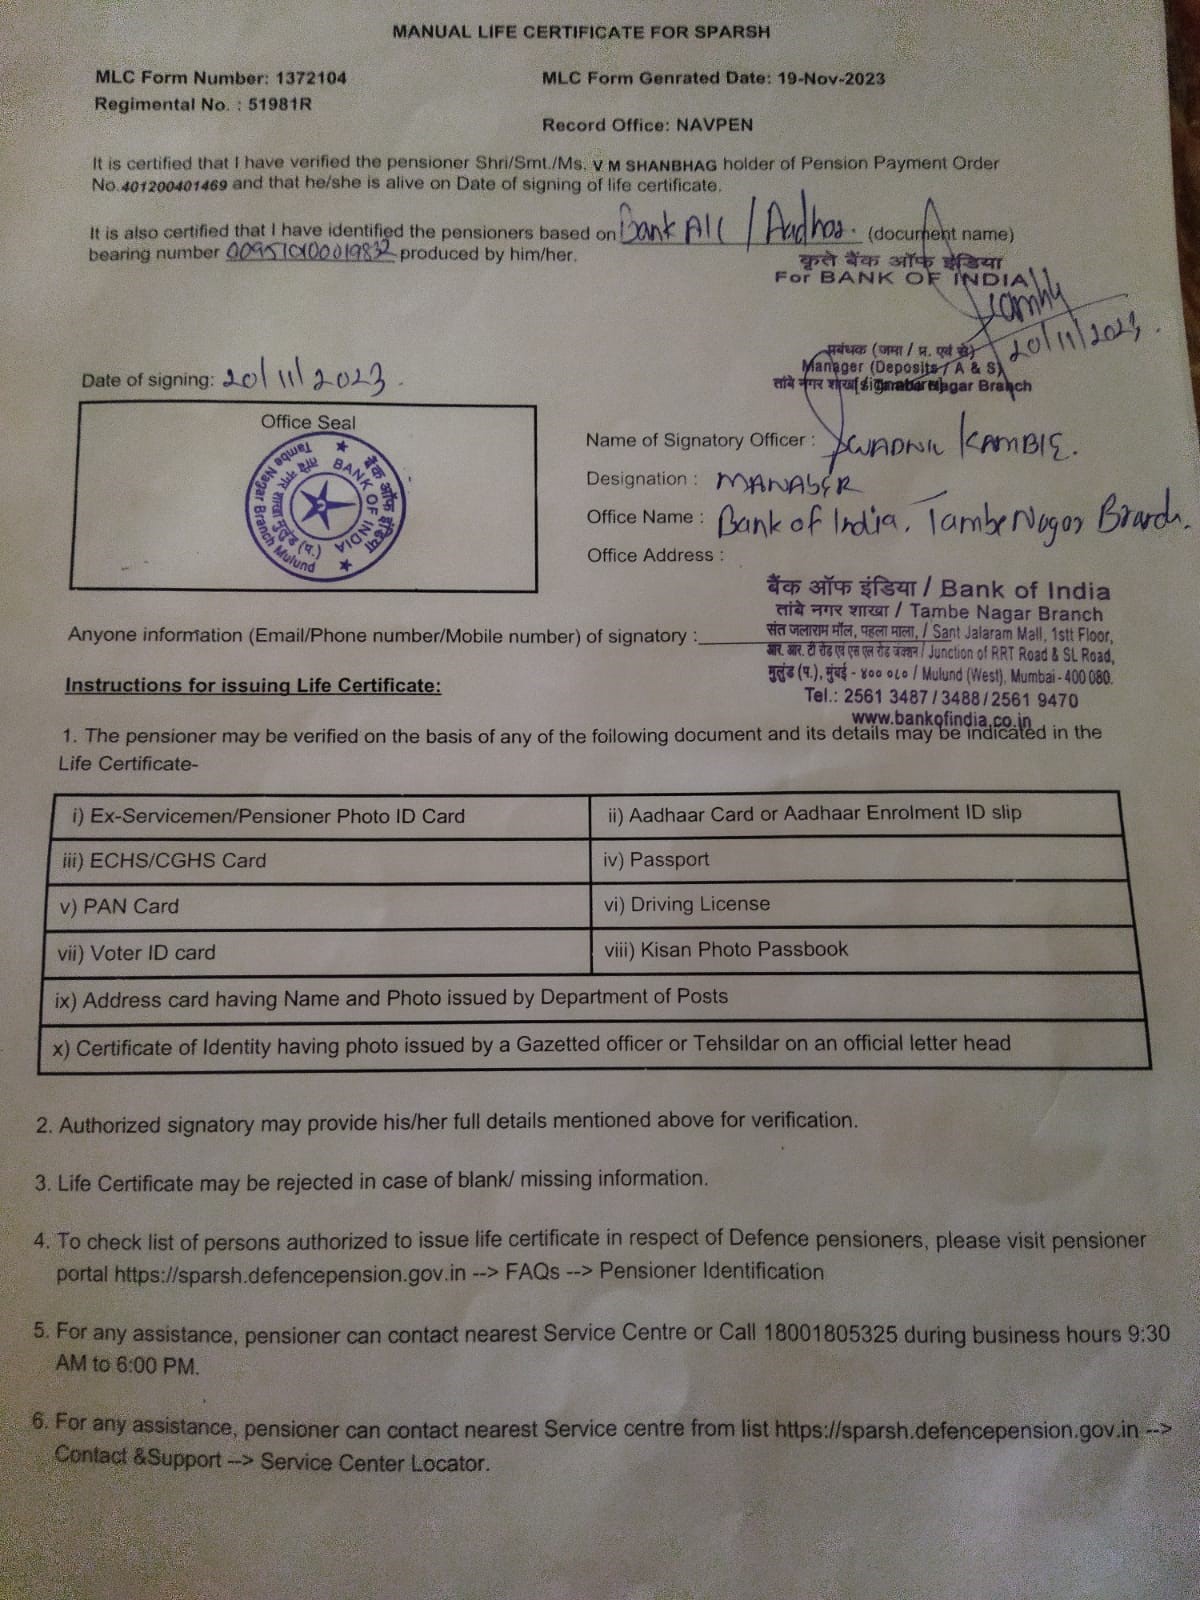 MANUAL LIFE CERTIFICATE FOR SPARSH
MLC Form Number: 1372104
MLC Form Genrated Date: 19-Nov-2023
Regimental No. : 51981R
Record Office: NAVPEN
It is certified that I have verified the pensioner Shri/Smt./Ms. V M SHANBHAG holder of Pension Payment Order
No.401200401469 and that he/she is alive on Date of signing of life certificate.
It is also certified that I have identified the pensioners based on Bank A/c / Aadhar. (document name)
bearing number 009510100019832 produced by him/her.
कृते बैंक ऑफ इंडिया
For BANK OF INDIA
20/11/2023.
प्रबंधक (जमा / प्र. एवं से)
Manager (Deposits / A & S)
तांबे नगर शाखा / Tambe Nagar Branch
(signature)
Date of signing: 20/11/2023.
Office Seal
बैंक ऑफ इंडिया
BANK OF INDIA
तांबे नगर शाखा मुलुंड (प.)
Tambe Nagar Branch Mulund
Name of Signatory Officer : KAMBLE.
Designation : MANAGER
Office Name : Bank of India, Tambe Nagar Branch.
Office Address :
बैंक ऑफ इंडिया / Bank of India
तांबे नगर शाखा / Tambe Nagar Branch
संत जलाराम मॉल, पहला माला, / Sant Jalaram Mall, 1stt Floor,
आर. आर. टी रोड एवं एस एल रोड जंक्शन / Junction of RRT Road & SL Road,
मुलुंड (प.), मुंबई - ४०० ०८० / Mulund (West), Mumbai - 400 080.
Tel.: 2561 3487 / 3488 / 2561 9470
www.bankofindia.co.in
Anyone information (Email/Phone number/Mobile number) of signatory :
Instructions for issuing Life Certificate:
1. The pensioner may be verified on the basis of any of the following document and its details may be indicated in the
Life Certificate-
i) Ex-Servicemen/Pensioner Photo ID Card
ii) Aadhaar Card or Aadhaar Enrolment ID slip
iii) ECHS/CGHS Card
iv) Passport
v) PAN Card
vi) Driving License
vii) Voter ID card
viii) Kisan Photo Passbook
ix) Address card having Name and Photo issued by Department of Posts
x) Certificate of Identity having photo issued by a Gazetted officer or Tehsildar on an official letter head
2. Authorized signatory may provide his/her full details mentioned above for verification.
3. Life Certificate may be rejected in case of blank/ missing information.
4. To check list of persons authorized to issue life certificate in respect of Defence pensioners, please visit pensioner
portal https://sparsh.defencepension.gov.in --> FAQs --> Pensioner Identification
5. For any assistance, pensioner can contact nearest Service Centre or Call 18001805325 during business hours 9:30
AM to 6:00 PM.
6. For any assistance, pensioner can contact nearest Service centre from list https://sparsh.defencepension.gov.in -->
Contact &Support --> Service Center Locator.